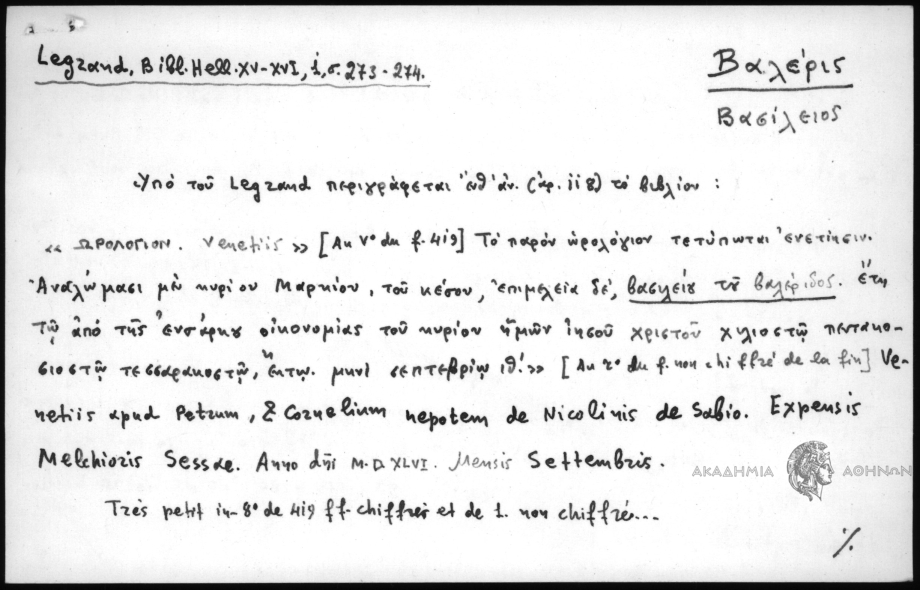 Legrand, Bibl. Hell. XV-XVI, 1, σ. 273-274.
Βαλέρις
Βασίλειος
Ὑπὸ τοῦ Legrand περιγράφεται ἐνθ' ἀν. (ἀρ. 118) τὸ βιβλίον :
« ΩΡΟΛΟΓΙΟΝ. Venetiis » [Au v° du f. 419] Τὸ παρὸν ὡρολόγιον τετύπωται ἐνετίησιν.
Ἀναλώμασι μὲν κυρίου Μαρκίου, τοῦ κέσου, ἐπιμελεία δέ, βασιλείου τοῦ βαλέριδος. ἔτη
τῷ ἀπὸ τῆς ἐνσάρκου οἰκονομίας τοῦ κυρίου ἡμῶν ἰησοῦ χριστοῦ χιλιοστῷ πεντακο-
σιοστῷ τεσσαρακοστῷ, ἕκτῳ. μηνὶ σεπτεβρίῳ ιθ'. » [Au r° du f. non chiffré de la fin] Ve-
netiis apud Petrum, & Cornelium nepotem de Nicolinis de Sabio. Expensis
Melchioris Sessae. Anno dñi M.D.XLVI. Mensis Settembris.
ΑΚΑΔΗΜΙΑ ΑΘΗΝΩΝ
Très petit in-8° de 419 ff. chiffrés et de 1. non chiffré...
%